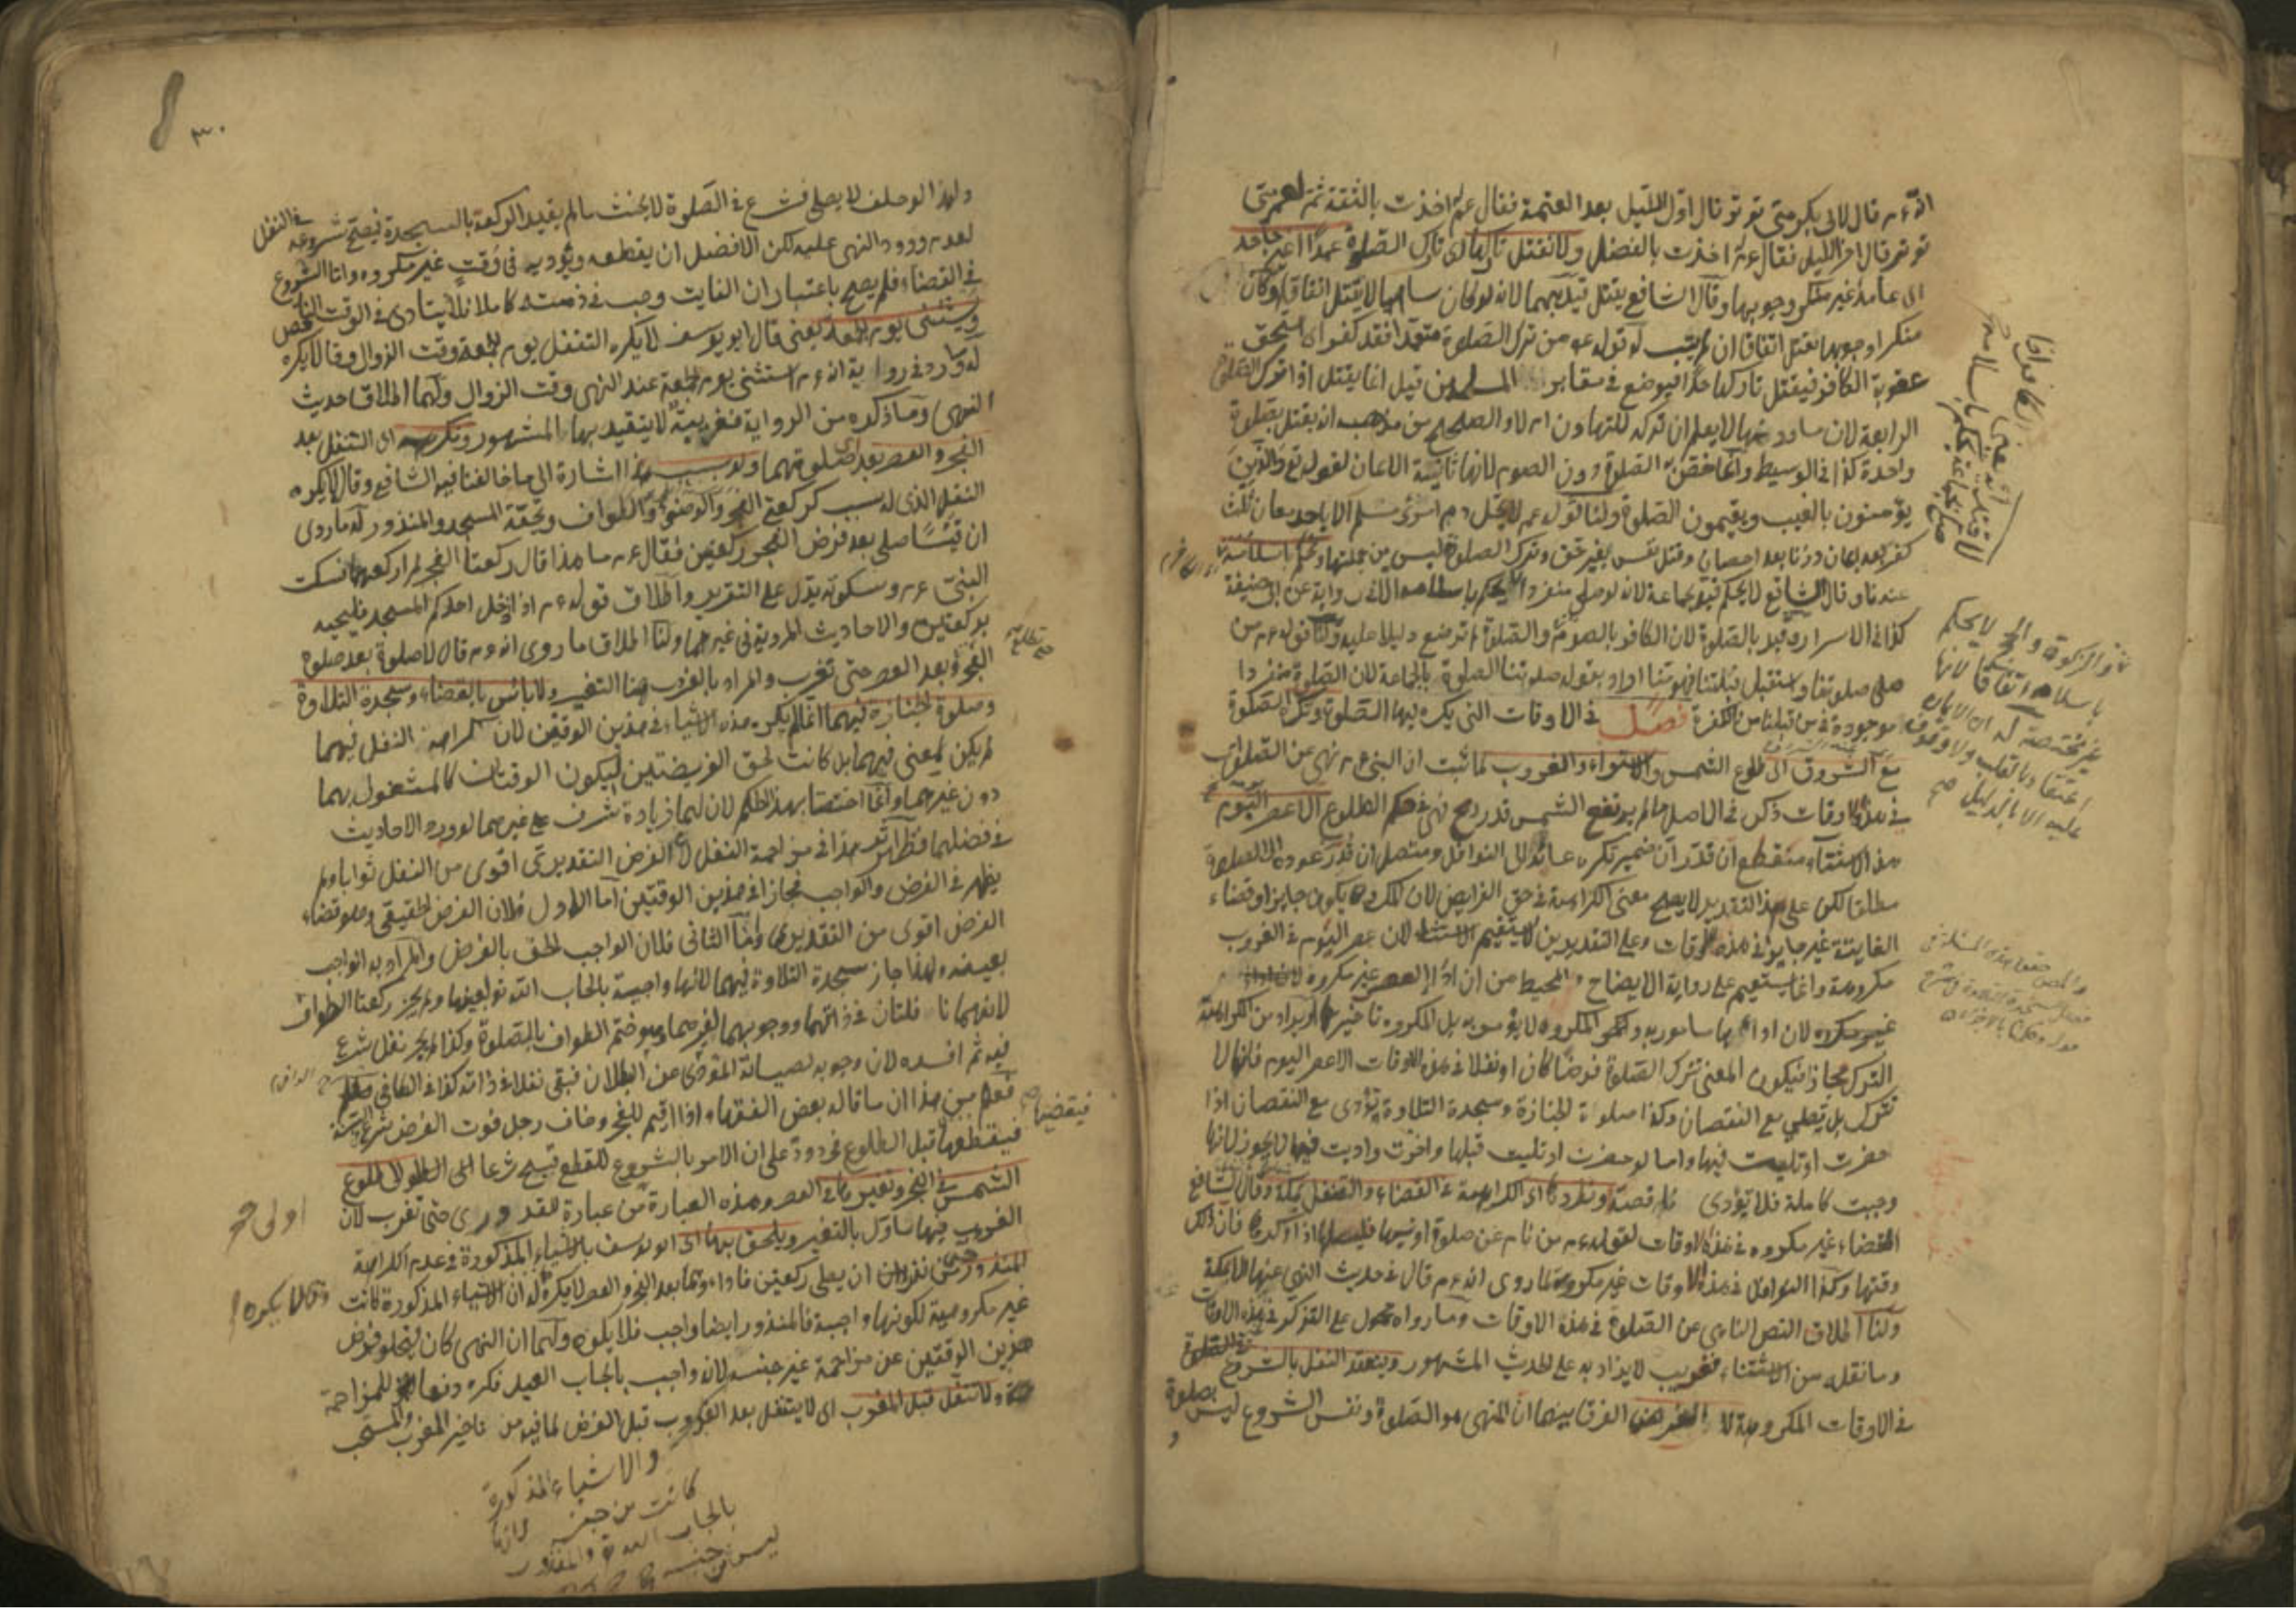 انه ء م قال لابى بكر متى توتر قال اول الليل بعد العتمة فقال عم اخذت بالثقة ثم لعمر متى
توتر قال اخر الليل فقال ءم اخذت بالفضل ولا نقتل تاركها اى تارك الصلوة عمدا غير جاحد
اى عامدا غير منكر وجوبها وقال الشافعى يقتل قيد بهما لانه لو كان ساهيا لا يقتل اتفاقا ولو كان
منكرا وجوبها يقتل اتفاقا ان لم يتب له قوله عم من ترك الصلوة متعمدا فقد كفر اى استحق
عقوبة الكافر فيقتل تاركها حدا فيوضع فى مقابر المسلمين قيل انما يقتل اذا ترك الصلوة
الرابعة لان ما دونها لا يعلم ان تركه للتهاون ام لا والصحيح من مذهبه ان يقتل بصلوة
واحدة كذا فى الوسيط وانما خص الصلوة دون الصوم لانها ثانية الايمان لقوله تع والذين
يؤمنون بالغيب ويقيمون الصلوة ولنا قوله عم لا يحل دم امرئ مسلم الا باحد معان ثلث
كفر بعد ايمان وزنا بعد احصان وقتل نفس بغير حق وترك الصلوة ليس من جملتها ونحكم باسلامه
عندنا وقال الشافعى لا يحكم قيد بجماعة لانه لو صلى منفردا لا يحكم باسلامه الا فى رواية عن ابى حنيفة
كذا فى الاسرار وقيد بالصلوة لان الكافر بالصوم والصلوة لم توضع دليلا عليه ولنا قوله ءم من
صلى صلوتنا واستقبل قبلتنا فهو منا اراد بقوله صلوتنا الصلوة بالجماعة لان الصلوة منفردا
موجودة فى من قبلنا من الكفرة فصل فى الاوقات التى يكره فيها الصلوة ونكره الصلوة
مع الشروق اى طلوع الشمس والاستواء والغروب لما ثبت ان النبى ءم نهى عن الصلوة
فى هذه الاوقات ذكر فى الاصل ما لم يرتفع الشمس قدر رمح فهى فى حكم الطلوع الا عصر اليوم
هذا الاستثناء منقطع ان قدر ان ضمير نكره عائد الى النوافل ومتصل ان قدر عوده الى الصلوة
مطلقا لكن على هذا التقدير لا يصح معنى الكراهة فى حق الفرايض لان المكروه يكون جايزا وقضاء
الفايتة غير جايز فى هذه الاوقات وعلى التقديرين لا يستقيم الاستثناء لان عصر اليوم فى الغروب
مكروهة وانما يستقيم على رواية الايضاح والمحيط من ان اداء العصر غير مكروه
لان اداءها مامور به والمكروه لا يؤمر به بل المكروه تاخيرها او يراد من الكراهة
الترك مجازا فيكون المعنى نترك الصلوة فرضا كان او نفلا فى هذه الاوقات الا عصر اليوم فانها لا
تترك بل تصلى مع النقصان وكذا صلوة الجنازة وسجدة التلاوة تؤدى مع النقصان اذا
حضرت او تليت فيها واما لو حضرت او تليت قبلها واخرت واديت فيها لا يجوز لانها
وجبت كاملة فلا تؤدى ناقصة ونطردها اى الكراهة فى القضاء والتنفل بمكة وقال الشافعى
القضاء غير مكروه فى هذه الاوقات لقوله ءم من نام عن صلوة او نسيها فليصلها اذا ذكرها فان ذلك
وقتها وكذا النوافل فى هذه الاوقات غير مكروهة لما روى انه ءم قال فى حديث النهى عنها الا بمكة
ولنا اطلاق النص الناهى عن الصلوة فى هذه الاوقات وما رواه محمول على التذكر فى غير هذه الاوقات
وما نقله من الاستثناء فغريب لا يزاد به على الحديث المشهور وينعقد النفل بالشروع
فى الاوقات المكروهة لا الفرض الفرق بينهما ان المنهى هو الصلوة ونفس الشروع ليس بصلوة
والزكوة والحج لا يحكم
باسلامه اتفاقا لانها
غير مختصة
عليه الا بالدليل صح
٣٠
ولهذا لو حلف لا يصلى فشرع فى الصلوة لا يحنث ما لم يقيد الركعة بالسجدة فيصح شروعه فى النفل
لعدم ورود النهى عليه لكن الافضل ان يقطعه ويؤديه فى وقت غير مكروه واما الشروع
فى القضاء فلم يصح باعتبار ان الفايت وجب فى ذمته كاملا فلا يتادى فى الوقت الناقص
ويستثنى يوم الجمعة يعنى قال ابو يوسف لا يكره التنفل يوم الجمعة وقت الزوال وقالا يكره
له ما ورد فى رواية انه ءم استثنى يوم الجمعة عند النهى وقت الزوال ولهما اطلاق حديث
النهى وما ذكره من الرواية فغريبة لا يتقيد بها المشهور ونكرهه اى التنفل بعد
الفجر والعصر اى بعد صلوتهما ولو بسبب هذا اشارة الى ما خالفنا فيه الشافعى وقال لا يكره
النفل الذى له سبب كركعتى الفجر والوضوء والطواف وتحية المسجد والمنذور له ما روى
ان قيسا صلى بعد فرض الفجر ركعتين فقال ءم ما هذا قال ركعتا الفجر لم اركعهما فسكت
النبى ءم وسكوته يدل على التقرير واطلاق قوله ءم اذا دخل احدكم المسجد فليحيه
بركعتين والاحاديث المروية فى غيرهما ولنا اطلاق ما روى انه ءم قال لا صلوة بعد صلوة
الفجر وبعد العصر حتى تغرب والمراد بالغروب هنا التغير ولا باس بالقضاء وسجدة التلاوة
وصلوة الجنازة فيهما انما لم يكره هذه الاشياء فى هذين الوقتين لان كراهة النفل فيهما
لم يكن لمعنى فيهما بل كانت لحق الفريضتين ليكون الوقتان كالمشغول بهما
دون غيرهما وانما اختصا بهذا الحكم لان لهما زيادة شرف على غيرهما لورود الاحاديث
فى فضلهما فظهر اثر هذا فى مزاحمة النفل لان الفرض التقديرى اقوى من النفل ثوابا ولم
يظهر فى الفرض والواجب فجاز فى هذين الوقتين اما الاول فلان الفرض الحقيقى وهو قضاء
الفرض اقوى من التقديرى واما الثانى فلان الواجب لحق بالفرض والمراد به الواجب
بعينه ولهذا جاز سجدة التلاوة فيهما لانها واجبة بايجاب الله تع بعينها ولم يجز ركعتا الطواف
لانهما نافلتان فى ذاتهما ووجوبهما لغيرهما وهو ختم الطواف بالصلوة وكذا لم يجز نفل شرع
فيه ثم افسده لان وجوبه لصيانة المؤدى عن البطلان فبقى نفلا فى ذاته كذا فى الكافى
فعلم من هذا ان ما قاله بعض الفقهاء اذا اقيم للفجر وخاف رجل فوت الفرض شرع فى السنة
فيقطعها قبل الطلوع مردود على ان الامر بالشروع للقطع قبيح شرعا الى الطلوع
الشمس فى الفجر وتغيرها فى العصر وهذه العبارة من عبارة القدورى حتى تغرب لان
الغروب فيها ماؤل بالتغير ويلحق بها اى ابو يوسف بالاشياء المذكورة فى عدم الكراهة
المنذور حتى نذر ان يصلى ركعتين فاداهما بعد الفجر والعصر لا يكره له ان الاشياء المذكورة كانت
غير مكروهة لكونها واجبة فالمنذور ايضا واجب فلا يكره ولهما ان النهى كان ليخلو فرض
هذين الوقتين عن مزاحمة غير جنسه لانه واجب بايجاب العبد فكره دفعا للمزاحمة
ولا نتنفل قبل المغرب اى لا يتنفل بعد الغروب قبل الفرض لما فيه من تاخير المغرب المستحب
فيقضيها
اولى صح
وقالا يكره
والاشياء المذكورة
كانت من جنسه
بايجاب الله تع والمنذور
ليس من جنسه